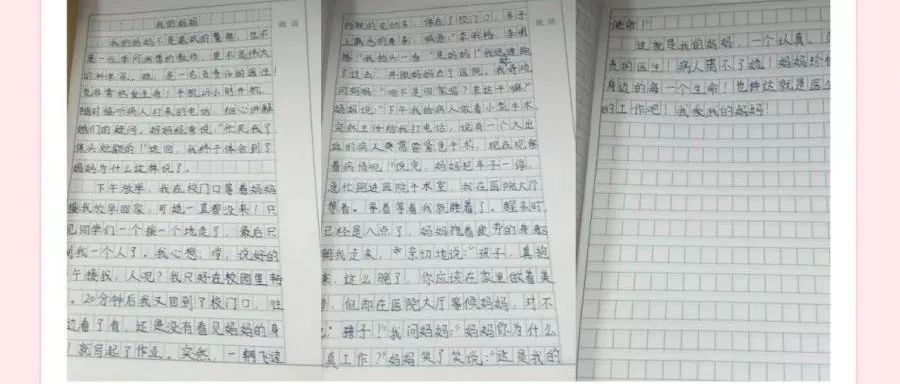 我的妈妈
我的妈妈不是威武的警察，也不
是一位学问渊博的教师，更不是伟大
的科学家。她，是一名负责任的医生！
她非常热爱生命！手机24小时开机，
随时接听病人打来的电话，细心讲解
她们的疑问，妈妈经常说“忙死我了
焦头烂额的！”这回，我终于体会到了
妈妈为什么这样说了。
下午放学，我在校门口等着妈妈
接我放学回家，可她一直都没来！只
见同学们一个接一个地走了，最后只
到我一个人了。我心想：哼，说好的
午接我，人呢？我只好在校园里转
。20分钟后我又回到了校门口，往
边看了看，还是没有看见妈妈的身
！就写起了作业。突然，一辆飞速
行驶的电动车，停在了校门口，车子
上熟悉的身影，喊道：“李明格，李明
格！”我抬头一看“是妈妈！”我迅速跑
了过去，并跟妈妈去了医院。我奇怪
问妈妈“咱不是回家吗？来这干嘛？”
妈妈说：“下午我给病人做着小型手术，
突然主任给我打电话，说有一个大出
血的病人要紧急手术，现在观察
着病情呢！”说完，妈妈把车子一停，
急忙跑进医院手术室，我在医院大厅
等着。等着等着我就睡着了。醒来时，
已经是八点了，妈妈拖着疲劳的身躯
朝我走来，亲切地说：“孩子，真抱
歉，这么晚了，你应该在家里做着美
梦，但却在医院大厅等候妈妈，对不
孩子！”我问妈妈：“妈妈你为什么
真工作？”妈妈笑了笑说：“这是我的
使命！”
这就是我的妈妈，一个认真、负
责的医生！病人离不了她！妈妈珍惜
身边的每一个生命！也许这就是医生
的工作吧！我爱我的妈妈！